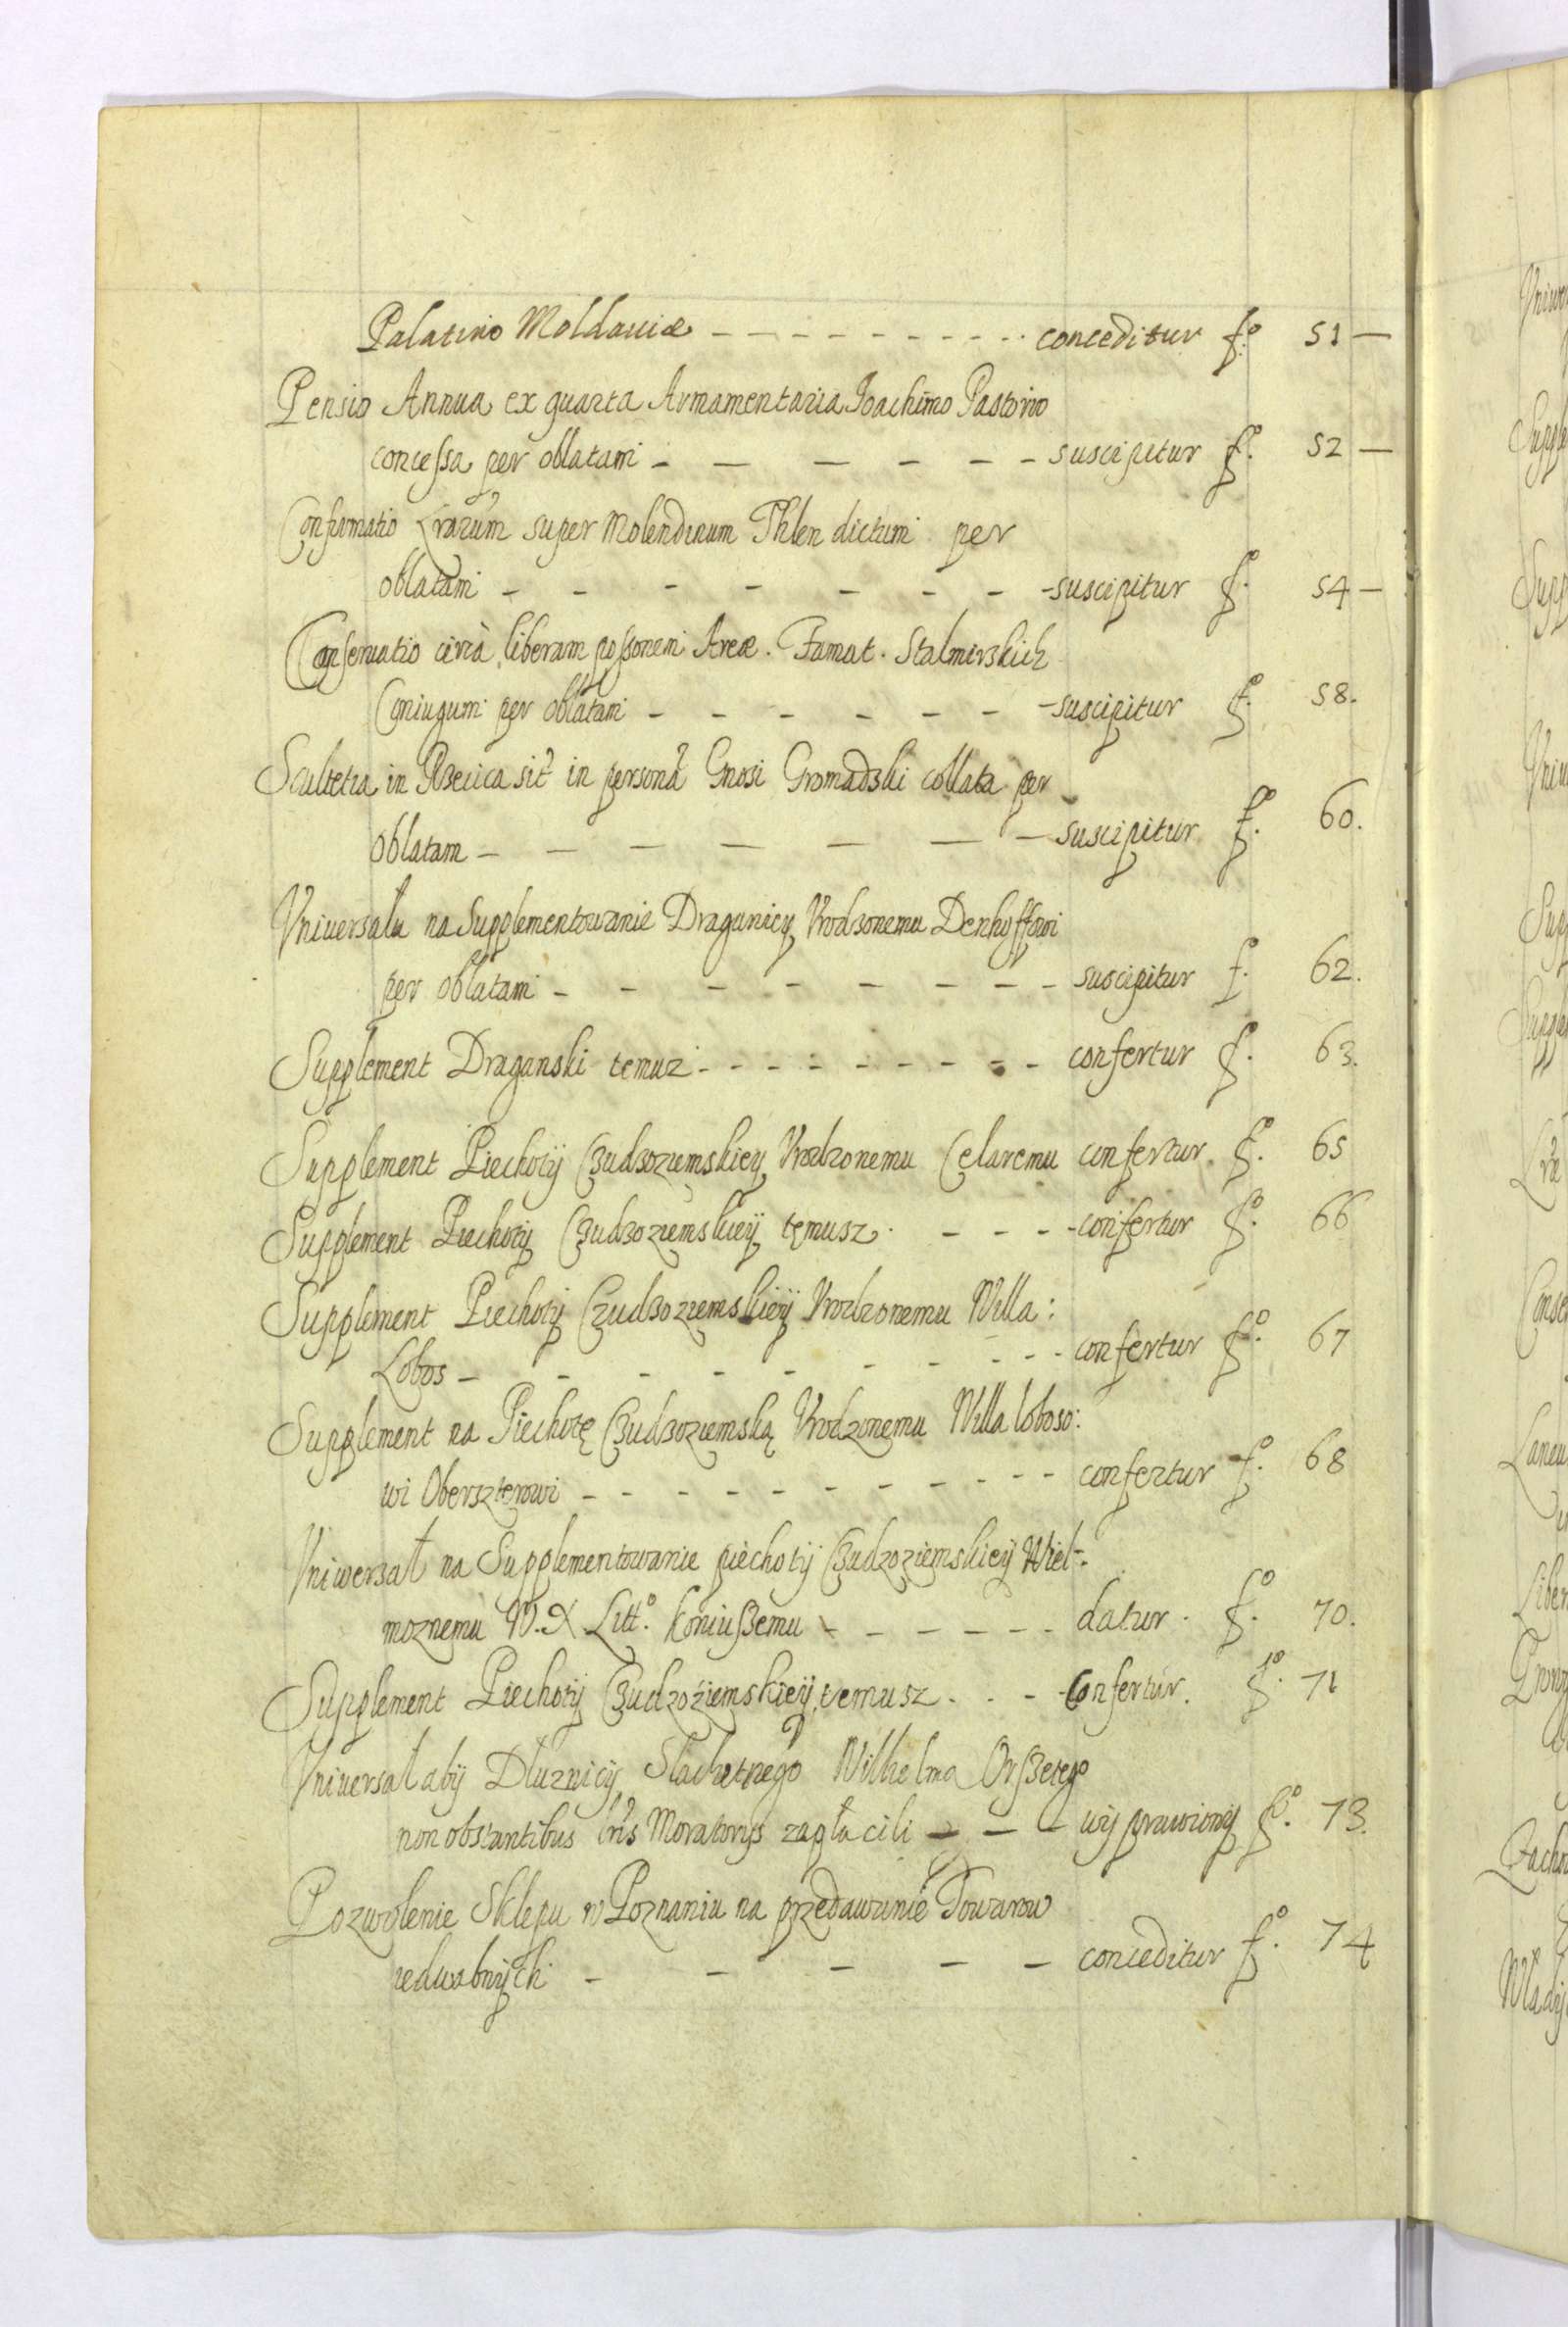 Palatino Moldauiæ - - - - - - - - - - conceditur fº. 51 —
Pensio Annua ex quarta Armamentaria Joachimo Pastorio
concessa per oblatam - - - - - - suscipitur fº. 52 —
Confirmatio Lrarum super Molendinum Phlen dictum per
oblatam - - - - - - - - suscipitur fº. 54 —
Conseruatio circà liberam possonem Areæ. Famat. Stalmirskich
Coniugum per oblatam - - - - - - - suscipitur fº. 58.
Scultetia in sit in personã Gnosi Gromadski collata per
oblatam - - - - - - - suscipitur fº. 60.
Vniuersału na Supplementowanie Draguniey Vrodzonemu Denhoffowi
per oblatam - - - - - - - - suscipitur fº. 62.
Supplement Draganski temuz - - - - - - - - - confertur fº. 63.
Supplement Piechoty Czudzoziemskiey Vrodzonemu Celaremu confertur. fº. 65
Supplement Piechoty Czudzoziemskieÿ temusz. - - - - confertur fº. 66
Supplement Piechotÿ Czudzoziemskieÿ Vrodzonemu Villa:
Lobos - - - - - - - - - confertur fº. 67
Supplement na Piechotę Czudzoziemską Vrodzonemu Villa loboso:
wi Oberszterowi - - - - - - - - - - confertur fº. 68
Vniwersał na Supplementowanie piechotÿ Czudzoziemskieÿ Wiel-
moznemu W. X. Littº. Koniuszemu - - - - - - datur. fº. 70.
Supplement Piechotÿ Czudzoźiemskieÿ temusz. - - - Confertur. fº. 71
Vniuersał abÿ Dluznicÿ Slachetnego Wilhelma Orszetego
non obstantibus lris Moratorÿs zapłacili - - - wÿprawionÿ fº. 73.
Pozwolenie Sklepu w Poznaniu na przedawanie Towarow
iedwabnÿch - - - - - conceditur fº. 74